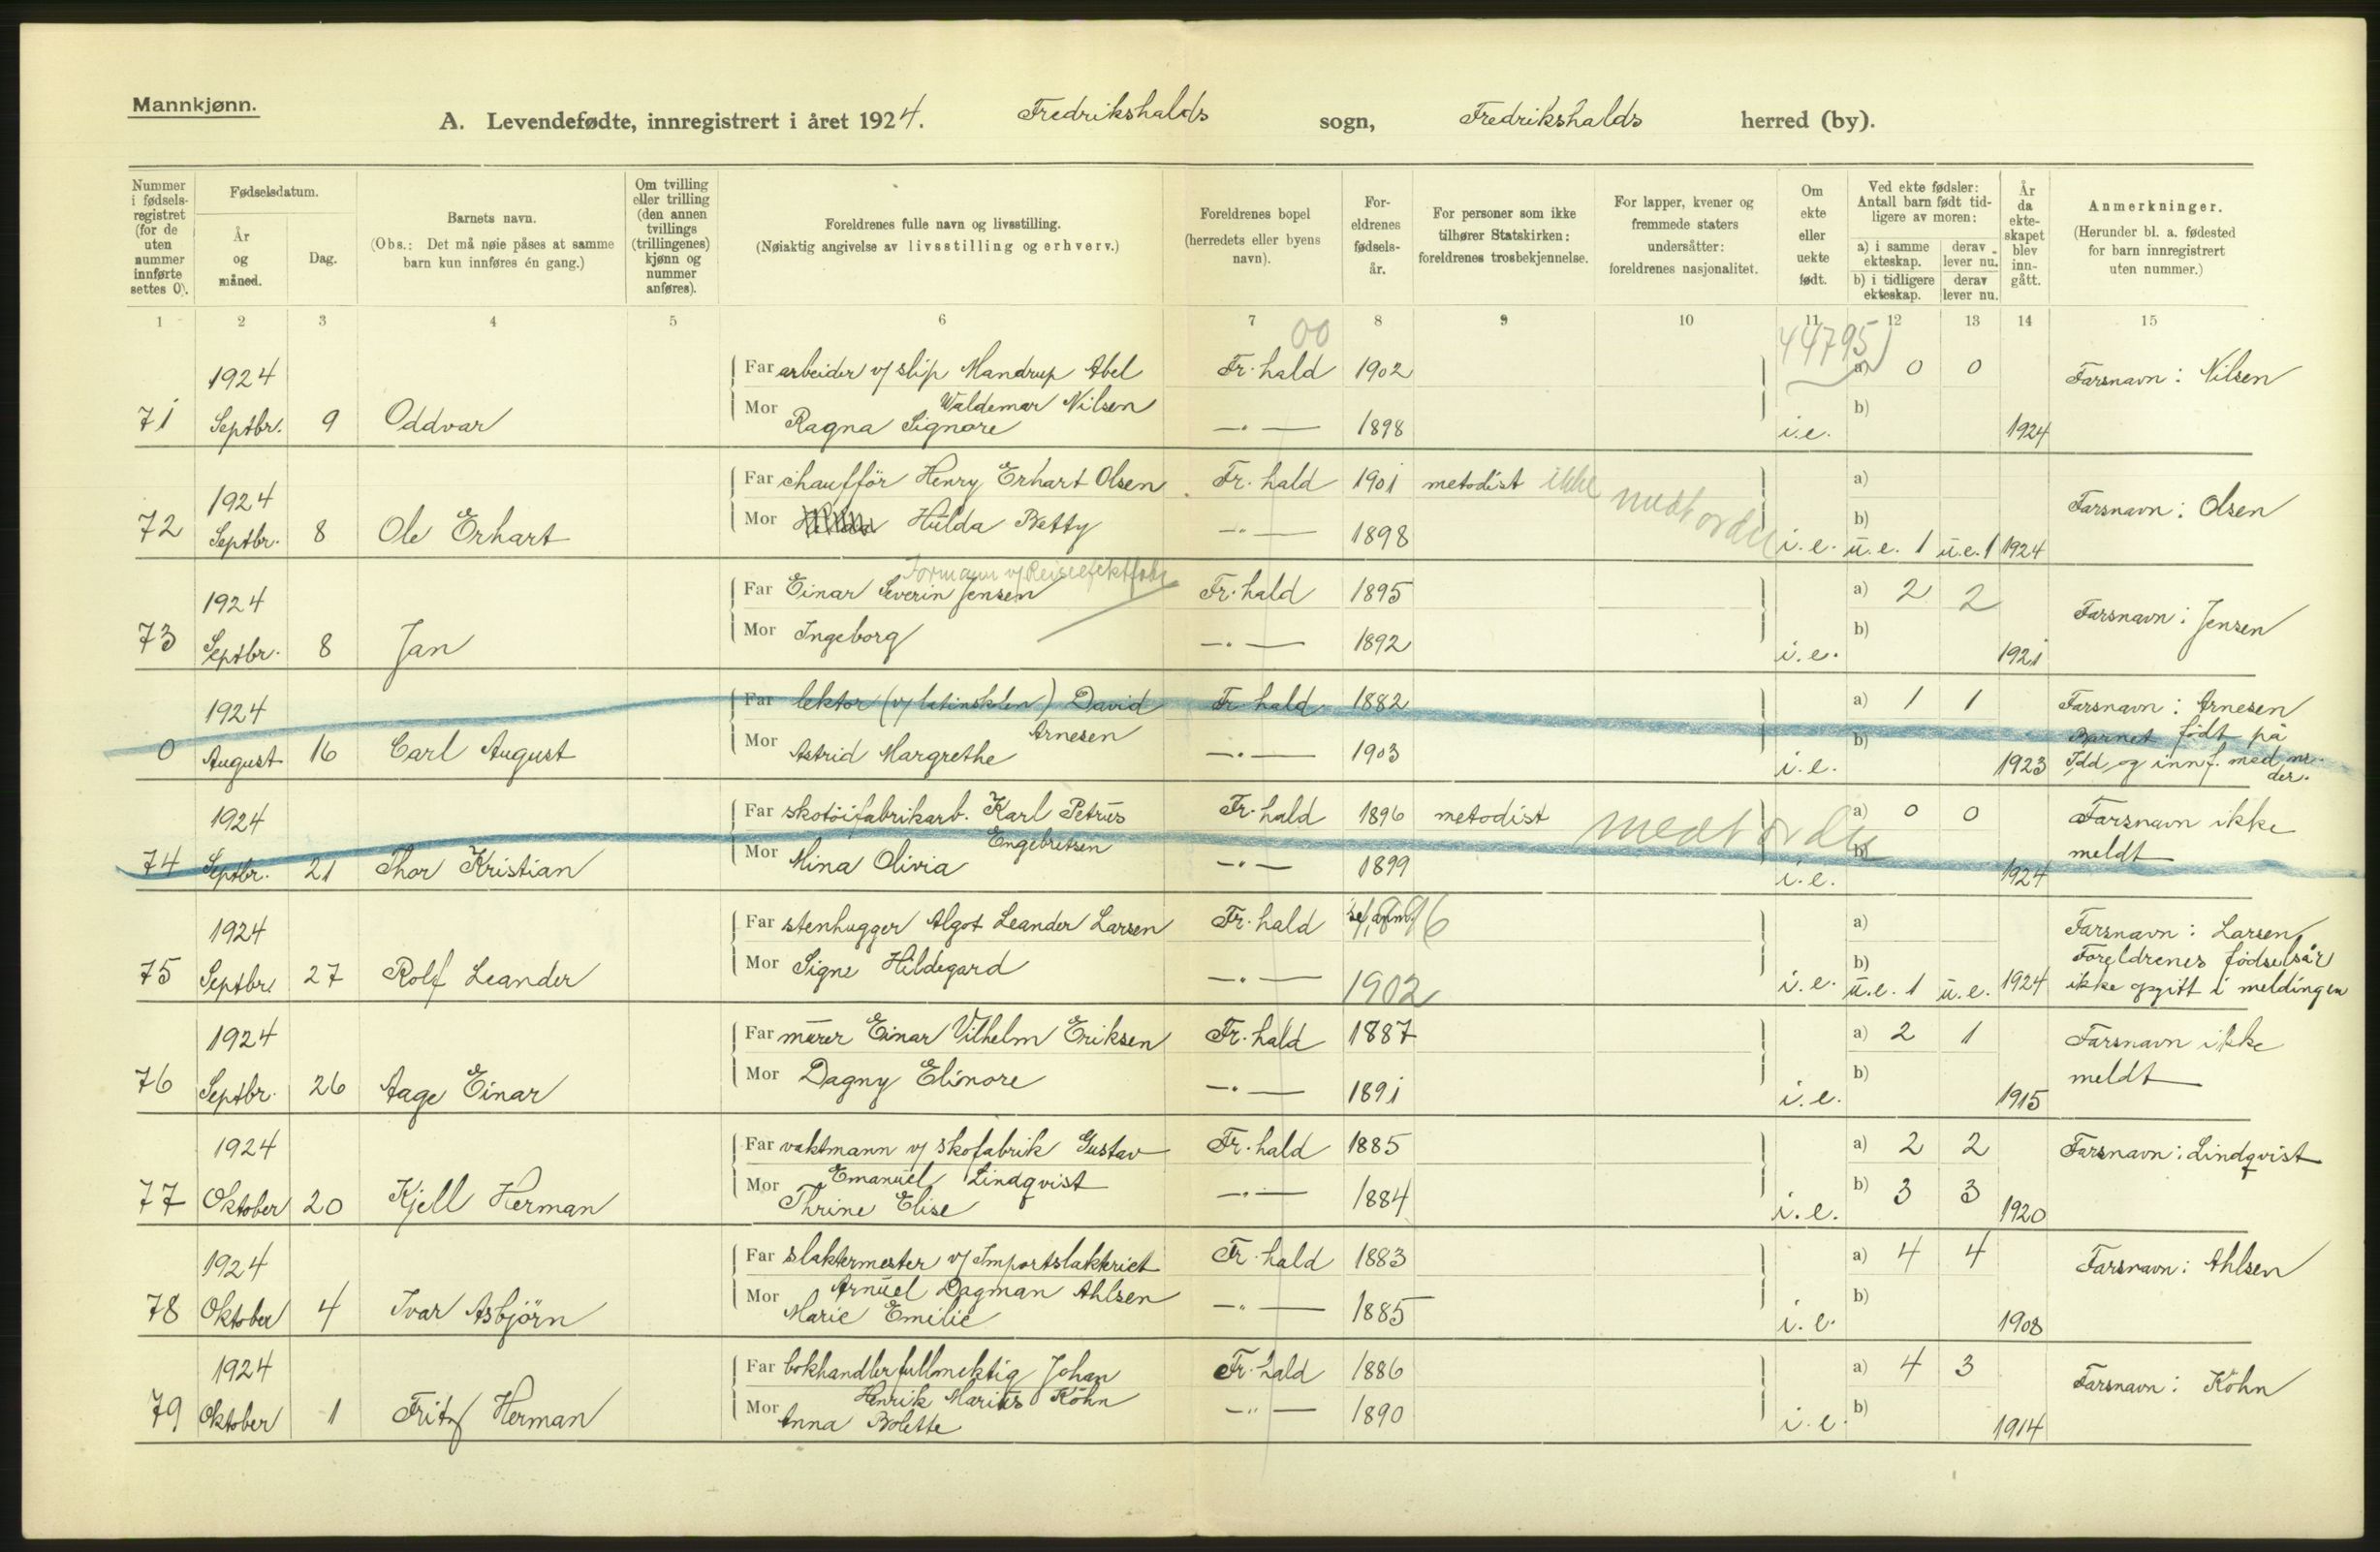 Mannkjønn.
A. Levendefødte, innregistrert i året 1924. Fredrikshalds sogn, Fredrikshalds herred (by).
Nummer i fødselsregistret (for de uten nummer innførte settes 0).
Fødselsdatum.
År og måned.
Dag.
Barnets navn.
(Obs.: Det må nøie påses at samme barn kun innføres én gang.)
Om tvilling eller trilling (den annen tvillings (trillingenes) kjønn og nummer anføres).
Foreldrenes fulle navn og livsstilling.
(Nøiaktig angivelse av livsstilling og erhverv.)
Foreldrenes bopel (herredets eller byens navn).
Foreldrenes fødselsår.
For personer som ikke tilhører Statskirken: foreldrenes trosbekjennelse.
For lapper, kvener og fremmede staters undersåtter: foreldrenes nasjonalitet.
Om ekte eller uekte født.
Ved ekte fødsler: Antall barn født tidligere av moren:
a) i samme ekteskap.
derav lever nu.
b) i tidligere ekteskap.
derav lever nu.
År da ekteskapet blev inngått.
Anmerkninger.
(Herunder bl. a. fødested for barn innregistrert uten nummer.)
1 2 3 4 5 6 7 8 9 10 11 12 13 14 15
00 44795
1924 Far arbeider v/ slip Mandrup Abel Fr.hald 1902 a) 0 0 Farsnavn: Nilsen
Waldemar Nilsen
71 Septbr. 9 Oddvar Mor Ragna Signore —„— 1898 i.e. b) 1924
1924 Far chaufför Henry Erhart Olsen Fr.hald 1901 metodist ikke medt ordu a) Farsnavn: Olsen
72 Septbr. 8 Ole Erhart Mor Hulda Betty —„— 1898 i.e. b) u.e. 1 u.e. 1 1924
Formann v/
1924 Far Einar Severin Jensen Fr.hald 1895 a) 2 2 Farsnavn: Jensen
73 Septbr. 8 Jan Mor Ingeborg —„— 1892 i.e. b) 1921
1924 Far lektor (v/ latinskolen) David Fr.hald 1882 a) 1 1 Farsnavn: Arnesen
Arnesen Barnet født på
0 August 16 Carl August Mor Astrid Margrethe —„— 1903 i.e. b) 1923 Idd og innf. med nr.
der.
1924 Far skotöifabrikarb. Karl Petrus Fr.hald 1896 metodist medt ordu a) 0 0 Farsnavn ikke
Engebretsen meldt
74 Septbr. 21 Thor Kristian Mor Mina Olivia —„— 1899 i.e. b) 1924
1924 Far stenhugger Algot Leander Larsen Fr.hald se anm. a) Farsnavn: Larsen
Foreldrenes fødselsår
75 Septbr. 27 Rolf Leander Mor Signe Hildegard —„— 1902 i.e. b) u.e. 1 u.e. 1924 ikke opgitt i meldingen
1924 Far murer Einar Vilhelm Eriksen Fr.hald 1887 a) 2 1 Farsnavn ikke
76 Septbr. 26 Aage Einar Mor Dagny Elinore —„— 1891 i.e. b) 1915 meldt
1924 Far vaktmann v/ skofabrik Gustav Fr.hald 1885 a) 2 2 Farsnavn: Lindqvist
Emanuel Lindqvist
77 Oktober 20 Kjell Herman Mor Thrine Elise —„— 1884 i.e. b) 3 3 1920
1924 Far slaktermester v/ Importslakteriet Fr.hald 1883 a) 4 4 Farsnavn: Ahlsen
Arnuel Dagman Ahlsen
78 Oktober 4 Ivar Asbjörn Mor Marie Emilie —„— 1885 i.e. b) 1908
1924 Far bokhandlerfullmektig Johan Fr.hald 1886 a) 4 3 Farsnavn: Köhn
Henrik Marius Köhn
79 Oktober 1 Fritz Herman Mor Anna Bolette —„— 1890 i.e. b) 1914